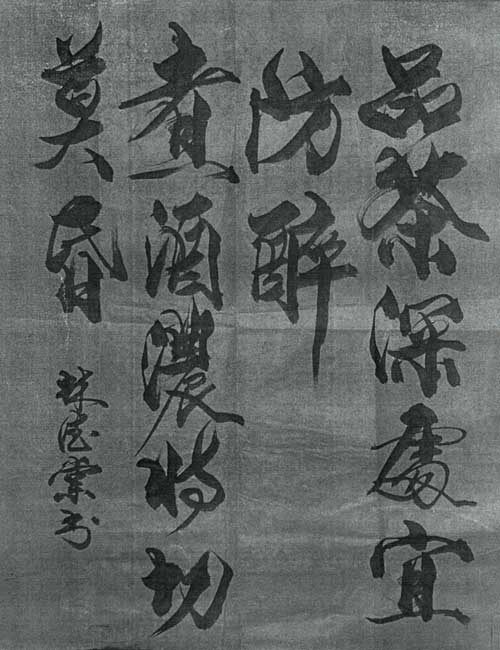 品茶深處宜
防醉
煮酒濃時切
莫昏
林德業书